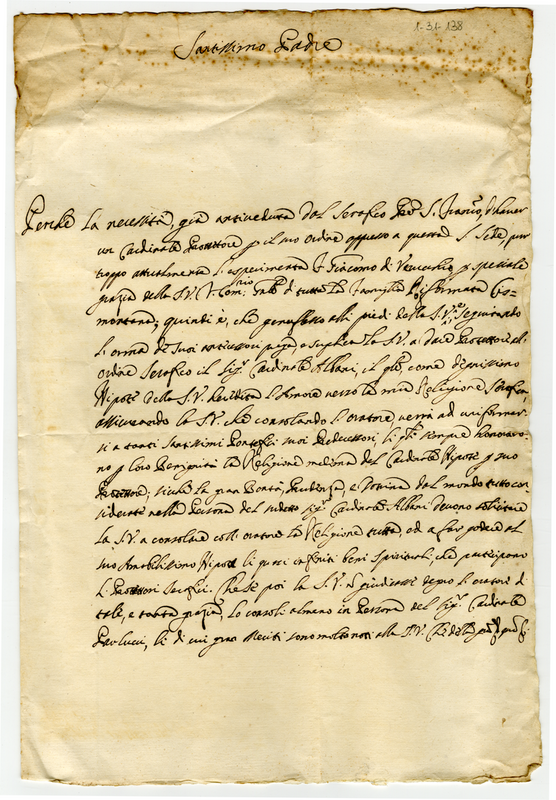 1-31-138
Santissimo Padre
Perche la necessità, già antiveduta dal Serafico Pre S. Franc.o, d'haver
un Cardinale Protettore p il suo ordine appresso a questa S. Sede, pur
troppo attualmente si esperimenta, F. Giacomo di p speciale
grazia della S.V. Com.rio di tutta la famiglia Riformata Cis=
montana; quindi è, che genuflesso alli piedi della S.V., seguitando
l'orma de suoi antecessori prega, e suplica la S.V. a dare Protettore all'
ordine Serafico il Sig.r Cardinale Albani, il qle, come degnissimo
Nipote della S.V. heredita l'Amore verso la mia Religione Serafica
assicurando la S.V. che consolando l'oratore verrà ad uniformar
si a tanti Santissimi Pontefici suoi Predecessori, li qli sempre honoraro
no p loro Benignità la Religione medema del Cardinale Nipote p suo
Protettore; siche la gran Bontà, Prudenza, e Dottrina dal mondo tutto con
siderate nella Persona del sudetto Sig.r Cardinale Albani devono solicitare
la S.V. a consolare coll'oratore la Religione tutta, ed a far godere al
suo Amabilissimo Nipote li quasi infiniti beni Spirituali, che participano
li Protettori Serafici. Che se poi la S.V. ñ giudicasse degno l'oratore di
tale, e tanta grazia, lo consoli almeno in Persona del Sig.r Cardinale
Paolucci, li di cui gran Meriti sono molto noti alla S.V. Che della